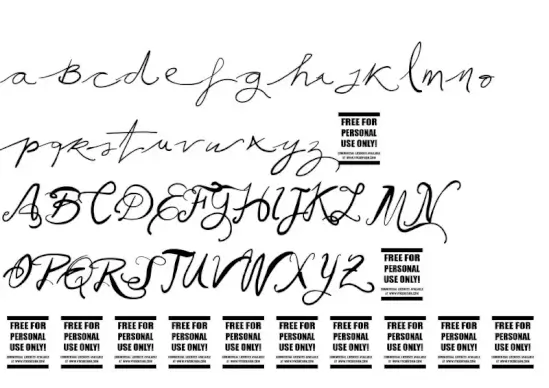 a B c d e f g h i j K l m n o
p q r s t u v w x y z FREE FOR PERSONAL USE ONLY!
A B C D E F G H I J K L M N
O P Q R S T U V W X Y Z FREE FOR PERSONAL USE ONLY!
FREE FOR PERSONAL USE ONLY! FREE FOR PERSONAL USE ONLY! FREE FOR PERSONAL USE ONLY! FREE FOR PERSONAL USE ONLY! FREE FOR PERSONAL USE ONLY! FREE FOR PERSONAL USE ONLY! FREE FOR PERSONAL USE ONLY! FREE FOR PERSONAL USE ONLY! FREE FOR PERSONAL USE ONLY! FREE FOR PERSONAL USE ONLY!